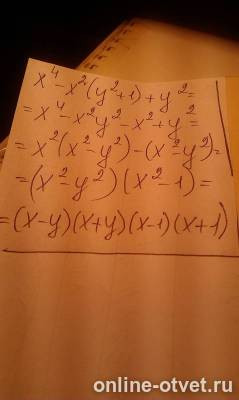 x⁴-x²(y²+1)+y²=
=x⁴-x²y²-x²+y²=
=x²(x²-y²)-(x²-y²)=
=(x²-y²)(x²-1)=
=(x-y)(x+y)(x-1)(x+1)
online-otvet.ru